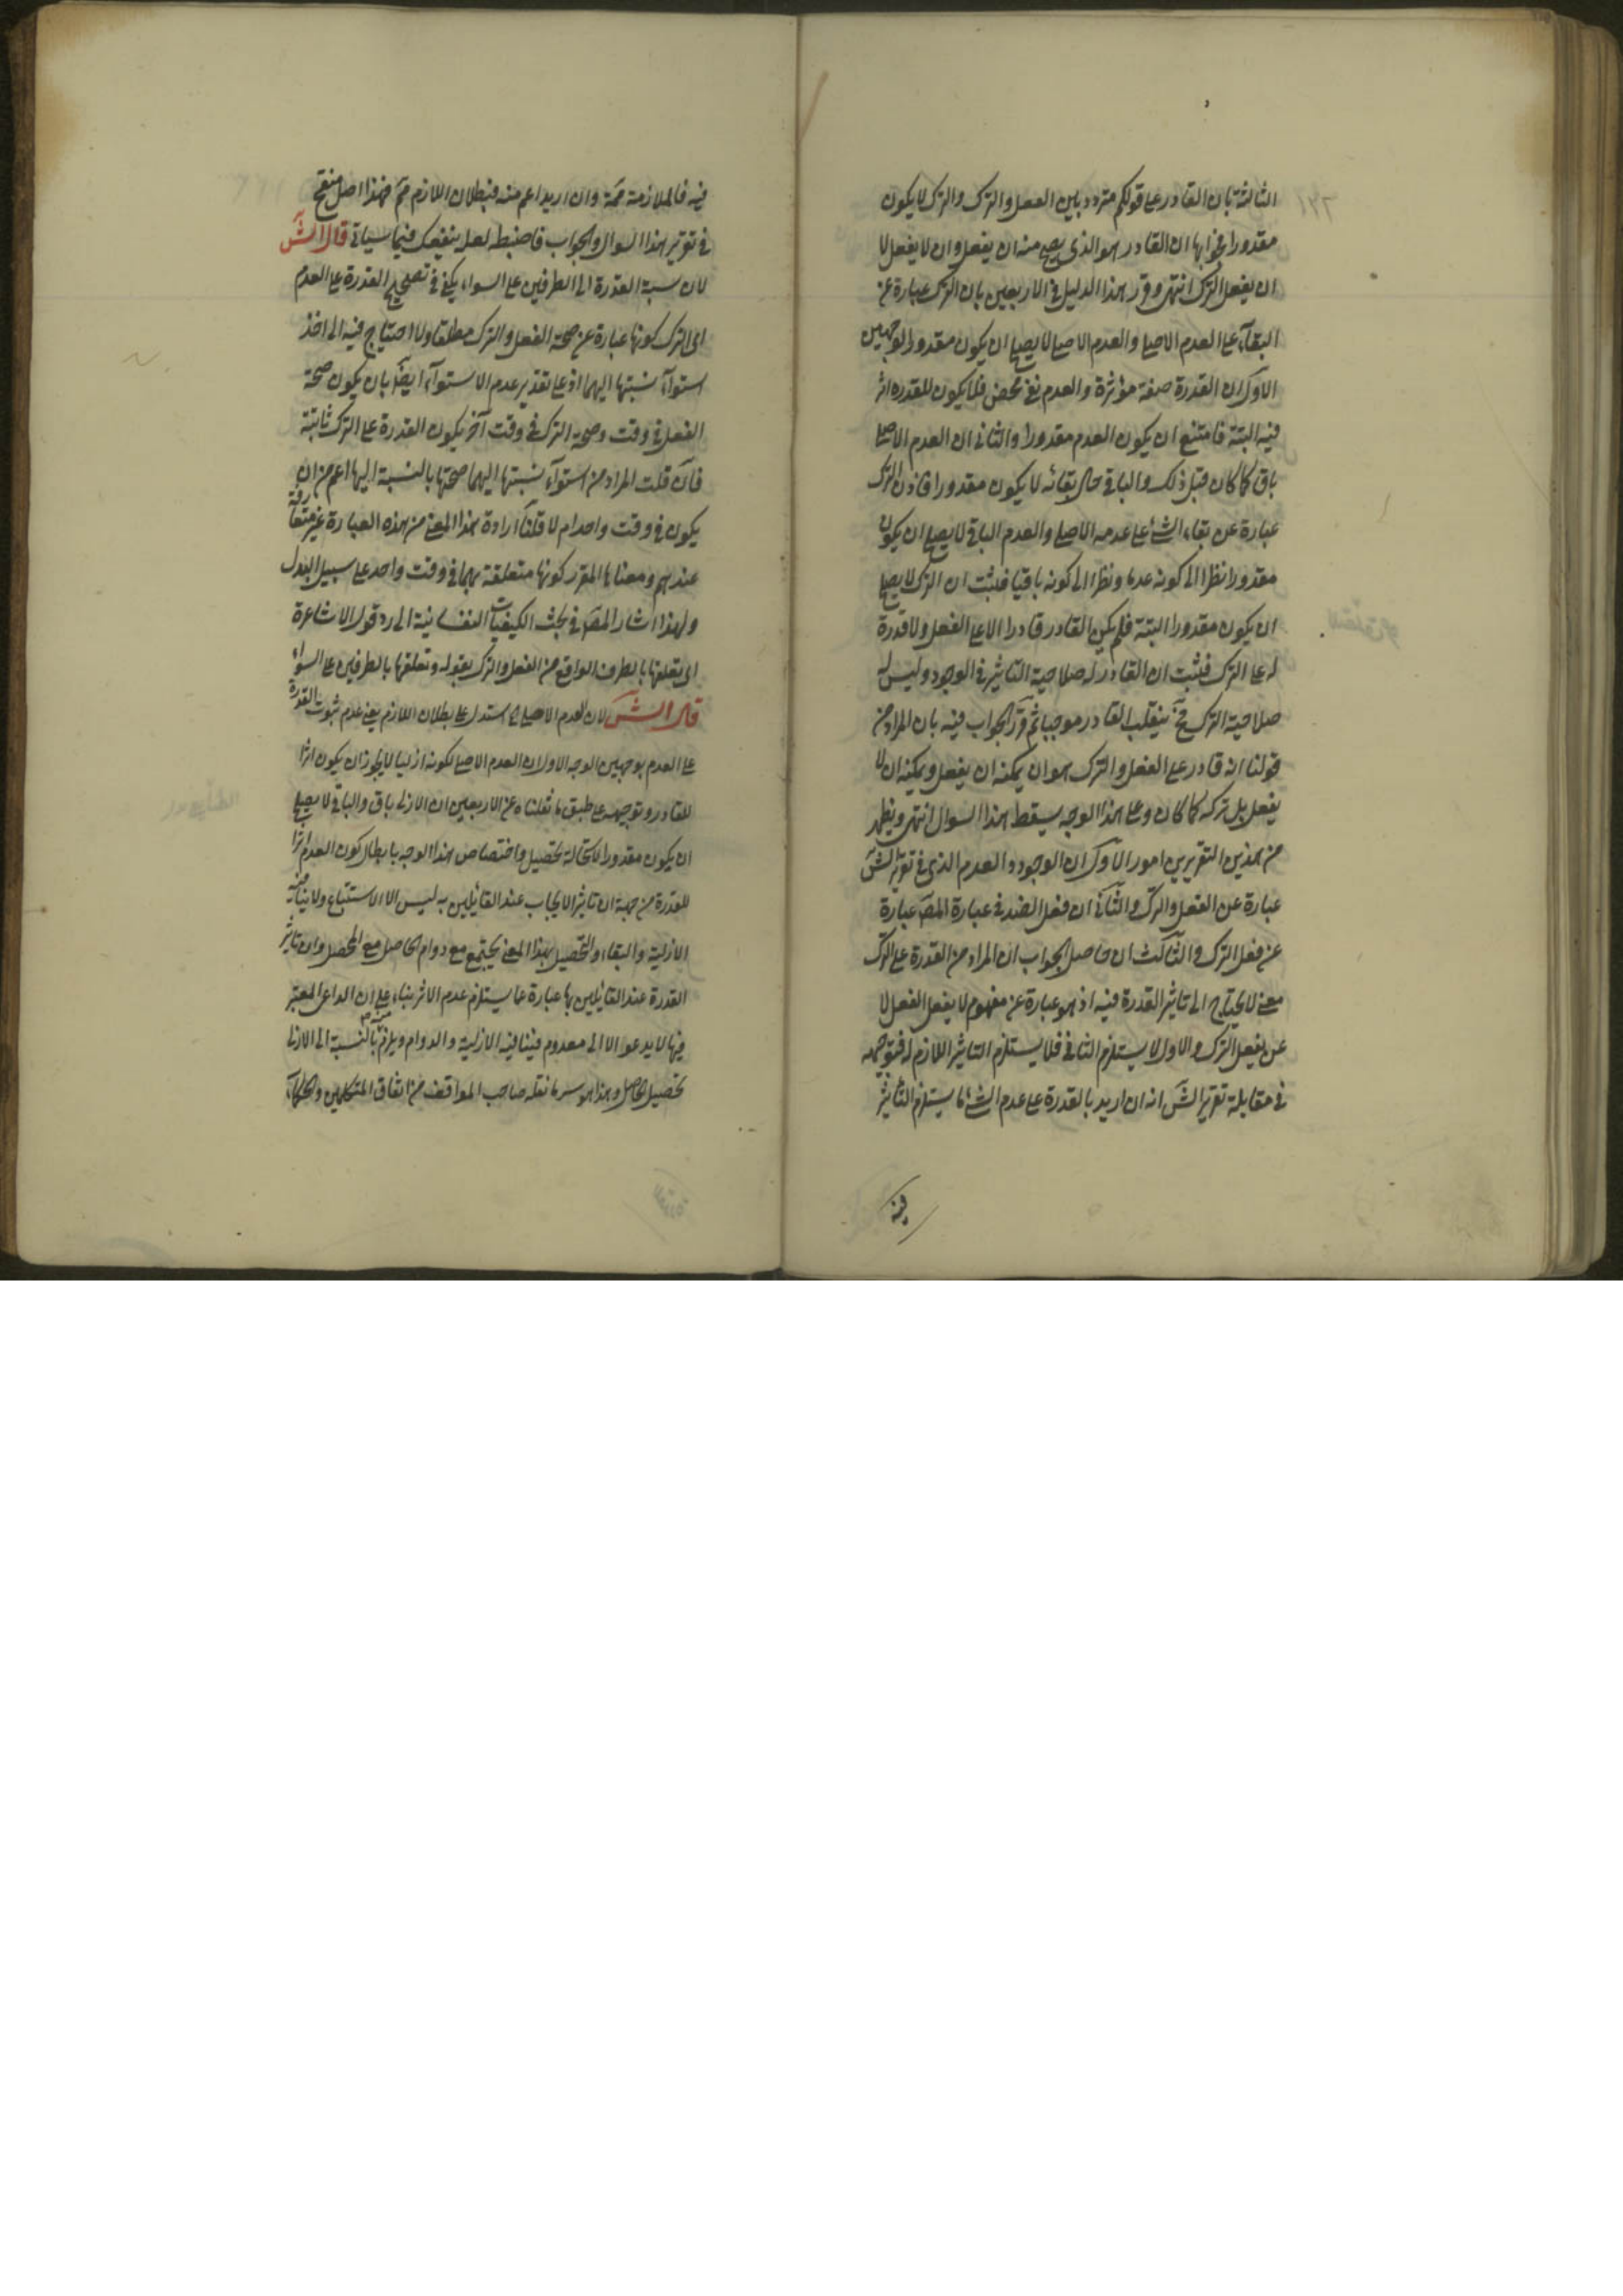 الثالثة بان القادر على قولكم متردد بين الفعل والترك والترك لا يكون
مقدورا فجوابها ان القادر هو الذى يصح منه ان يفعل وان لا يفعل لا
ان يفعل الترك انتهى وقرر هذا الدليل فى الاربعين بان الترك عبارة عن
البقاء على العدم الاصلى والعدم الاصلى لا يصلح ان يكون مقدورا لوجهين
الاول ان القدرة صفة مؤثرة والعدم نفى محض فلا يكون للقدرة اثر
فيه البتة فامتنع ان يكون العدم مقدورا والثانى ان العدم الاصلى
باق كما كان قبل ذلك والباقى حال بقائه لا يكون مقدورا فاذن الترك
عبارة عن بقاء الشئ على عدمه الاصلى والعدم الباقى لا يصلح ان يكون
مقدورا نظرا الى كونه عدما ونظرا الى كونه باقيا فثبت ان الترك لا يصلح
ان يكون مقدورا البتة فلم يكن القادر قادرا الا على الفعل ولا قدرة
له على الترك فثبت ان القادر له صلاحية التاثير فى الوجود وليس له
صلاحية الترك فح ينقلب القادر موجبا ثم قرر الجواب فيه بان المراد من
قولنا انه قادر على الفعل والترك هو ان يمكنه ان يفعل ويمكنه ان لا
يفعل بل تركه كما كان وعلى هذا الوجه يسقط هذا السوال انتهى ويظهر
من هذين التقريرين امور الاول ان الوجود والعدم الذى فى تقرير الش
عبارة عن الفعل والترك والثانى ان فعل الضد فى عبارة المص عبارة
عن فعل الترك والثالث ان حاصل الجواب ان المراد من القدرة على الترك
معنى لا يحتاج الى تاثير القدرة فيه اذ هو عبارة عن مفهوم لا يفعل الفعل لا
عن يفعل الترك والاول لا يستلزم الثانى فلا يستلزم التاثير اللازم له فتوجيهه
فى مقابلة تقرير الش انه ان اريد بالقدرة على عدم الشئ ما يستلزم التاثير
فيه
فيه فالملازمة مم وان اريد اعم منه فبطلان اللازم مم فهذا اصل منقح
فى تقرير هذا السوال والجواب فاضبطه لعله ينفعك فيما سياتى قال الش
لان نسبة القدرة الى الطرفين على السواء يكفى فى تصحيح القدرة على العدم
اى الترك كونها عبارة عن صحة الفعل والترك مطلقا ولا احتياج فيه الى اخذ
استواء نسبتها اليهما اذ على تقدير عدم الاستواء ايضا بان يكون صحة
الفعل فى وقت وصحة الترك فى وقت آخر يكون القدرة على الترك ثابتة
فان قلت المراد من استواء نسبتها اليهما صحتها بالنسبة اليهما اعم من ان
يكون فى وقت واحد ام لا قلنا ارادة هذا المعنى من هذه العبارة غير متعارفة
عندهم ومعناها المقرر كونها متعلقة بهما فى وقت واحد على سبيل البدل
ولهذا اشار المص فى بحث الكيفيات النفسانية الى رد قول الاشاعرة
اى تعلقها بالطرف الواقع من الفعل والترك بقوله وتعلقها بالطرفين على السواء
قال الش لان العدم الاصلى الخ استدل على بطلان اللازم يعنى عدم ثبوت القدرة
على العدم بوجهين الوجه الاول ان العدم الاصلى لكونه ازليا لا يجوز ان يكون اثرا
للقادر وتوجيهه على طبق ما نقلناه عن الاربعين ان الازلى باق والباقى لا يصلح
ان يكون مقدورا لاستحالة تحصيل واختصاص هذا الوجه بابطال كون العدم اثرا
للقدرة من جهة ان تاثير الايجاب عند القائلين به ليس الا الاستتباع ولا ينافيه
الازلية والبقاء والتحصيل بهذا المعنى يجتمع مع دوام الحاصل مع المحصل وان تاثير
القدرة عند القائلين بها عبارة عما يستلزم عدم الاثر بناء على ان الداعى المعتبر
فيها لا يدعو الا الى معدوم فينافيه الازلية والدوام ويلزم بالنسبة الى الازلى
تحصيل الحاصل وهذا هو سر ما نقله صاحب المواقف من اتفاق المتكلمين والحكماء